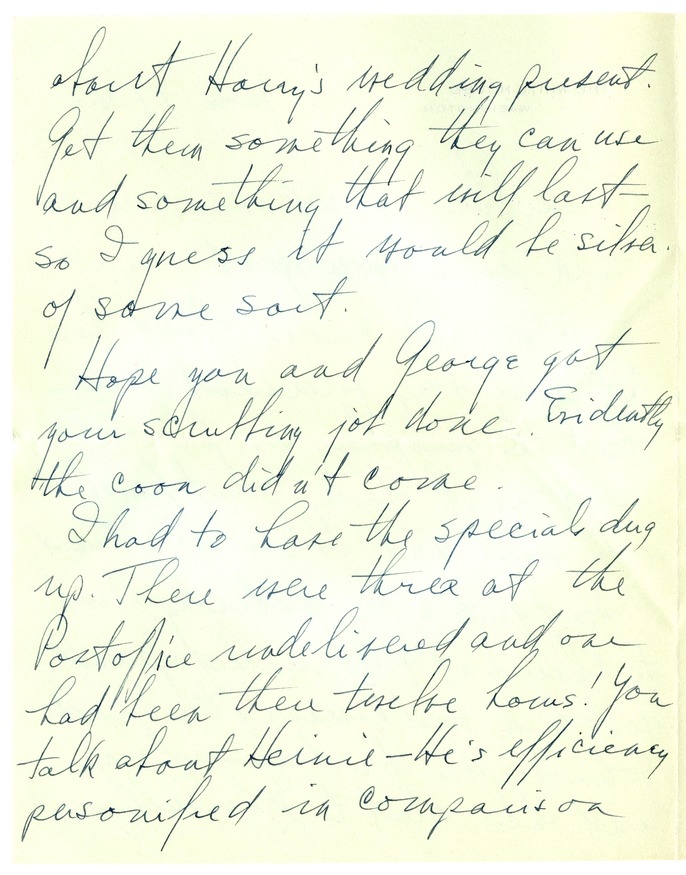 about Harry's wedding present.
Get them something they can use
and something that will last—
so I guess it would be silver.
of some sort.
Hope you and George got
your scrubbing job done. Evidently
the coon didn't come.
I had to have the specials dug
up. There were three at the
Postoffice undelivered and one
had been there twelve hours! You
talk about Heinie—He's efficiency
personified in comparison